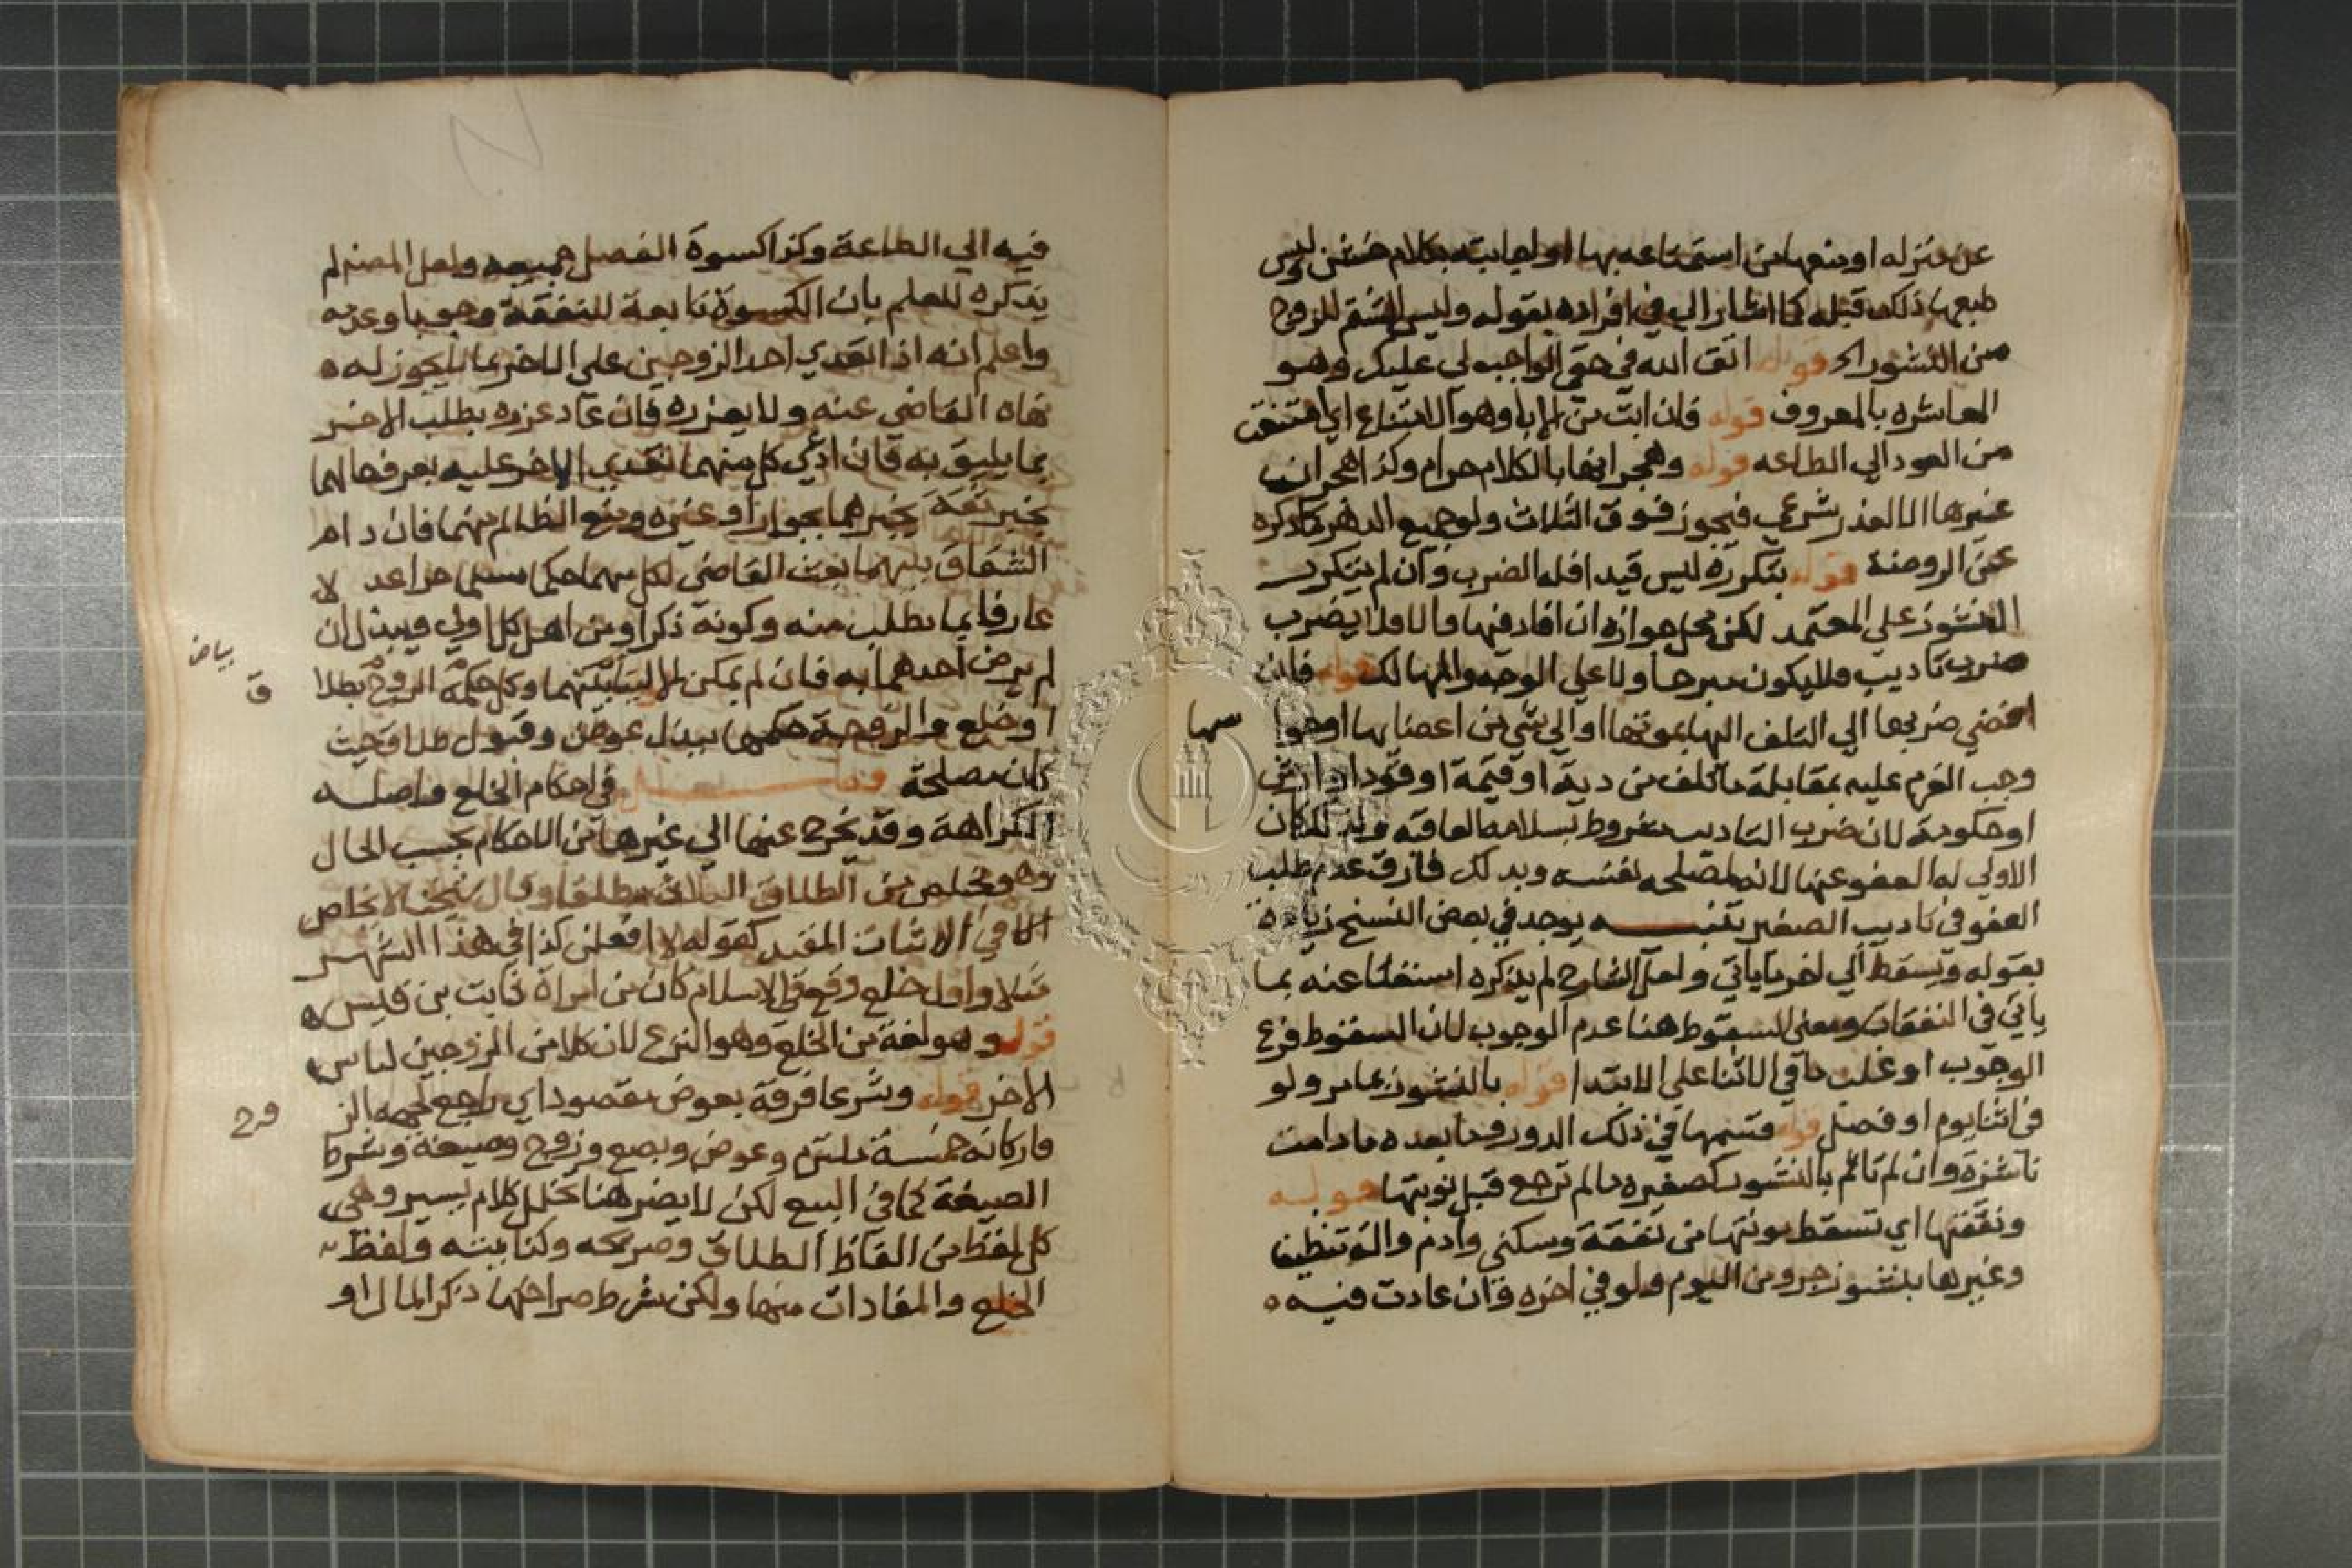 عن منزله او منعها من استمتاعه بها او اجابته بكلام خشن ليس
طبعها ذلك قبله كما اشار الي في افراده بقوله وليس الشتم للزوج
من النشوز اه قوله اتق الله في حقي الواجب لي عليك وهو
المعاشره بالمعروف قوله فان ابت من الابا وهو الامتناع اي امتنعت
من العود الي الطاعه قوله وهجرانها بالكلام حرام وكذا هجران
غيرها الا لعذر شرعي فيجوز فوق الثلاث ولو جميع الدهر كما ذكره
عن الروضة قوله بتكرره ليس قيد افله الضرب وان لم يتكرر
النشوز علي المعتمد لكن محل جوازه ان افاد فيها والا فلا يضرب
ضرب تاديب فلا يكون مبرحا ولا علي الوجه والمهالك قوله فان
افضي ضربها الي التلف اليها بموتها او الي شي من اعضايها او حوا
سها
وجب الغرم عليه بمقابلة ما تلف من دية او قيمة او قود او ارش
او حكومة لان ضرب التاديب مشروط بسلامه العاقبه ومن ثم كان
الاولي له العفو عنها لانه لمصلحه نفسه وبذلك فارق عدم طلب
العفو في تاديب الصغير تنبــــه يوجد في بعض النسخ زياده
بقوله ويسقط الي اخر ما ياتي ولعل الشارح لم يذكره استغنا عنه بما
ياتي في النفقات ومعني السقوط هنا عدم الوجوب لان السقوط فرع
الوجوب او غلب ما في الاثنا علي الابتدا قوله بالنشوز بما مر ولو
في اثنا يوم او فصل قوله قسمها في ذلك الدور وما بعده ما دامت
ناشزة وان لم تاثم بالنشوز كصغيره ما لم ترجع قبل نوبتها قوله
ونفقتها اي تسقط مونتها من نفقة وسكني وادم والة تنظيف
وغيرها بنشوز جزو من اليوم ولو في اخره فان عادت فيه
فيه الي الطاعة وكذا كسوة الفصل جميعه ولعل المصنم لم
يذكره للعلم بان الكسوة تابعة للنفقة وجوبا وعدمه
واعلم انه اذا تعدي احد الزوجين علي الاخر بما لا يجوز له
نهاه القاضي عنه ولا يعزره فان عاد عزره بطلب الاخر
بما يليق به فان ادعي كل منهما تعدي الاخر عليه يعرف حالهما
بخبر ثقة يخبرهما بجوار او غيره ويمنع الظالم منهما فان دام
الشقاق بينهما بعث القاضي لكل منهما حكما مسلما حرا عد لا
عارفا بما يطلب منه وكونه ذكرا ومن اهل كل اولي ويبذلان
بياض
لم يرض احدهما به فان لم يمكن الا ليتابينهما وكل حكمه الزوج بطلا
ق
او خلع والزوجة حكمها ببذل عوض وقبول طلاق حيث
كان مصلحة فصــــل في احكام الخلع واصله
الكراهة وقد يخرج عنها الي غيرها من الاحكام بحسب الحال
وهو مخلص من الطلاق الثلاث مطلقا وقال شيخنا لا يخلص
الا في الاثبات المقيد كقوله لا افعلن كذا في هذا الشهر
مثلا واول خلع وقع في الاسلام كان من امراة ثابت بن قيس
قوله وهو لغة من الخلع وهو النزع لان كلا من الزوجين لباس
الاخر قوله وشرعا فرقة بعوض مقصود اي راجع لجهه الز
وج
واركانه خمسة ملتزم وعوض وبضع وزوج وصيغة وشرط
الصيغة كما في البيع لكن لا يضر هنا تخلل كلام يسير وهي
كل لفظ من الفاظ الطلاق وصريحه وكنايته ولفظ
الخلع والمفادات منها ولكن شرط صراحتها ذكر المال او